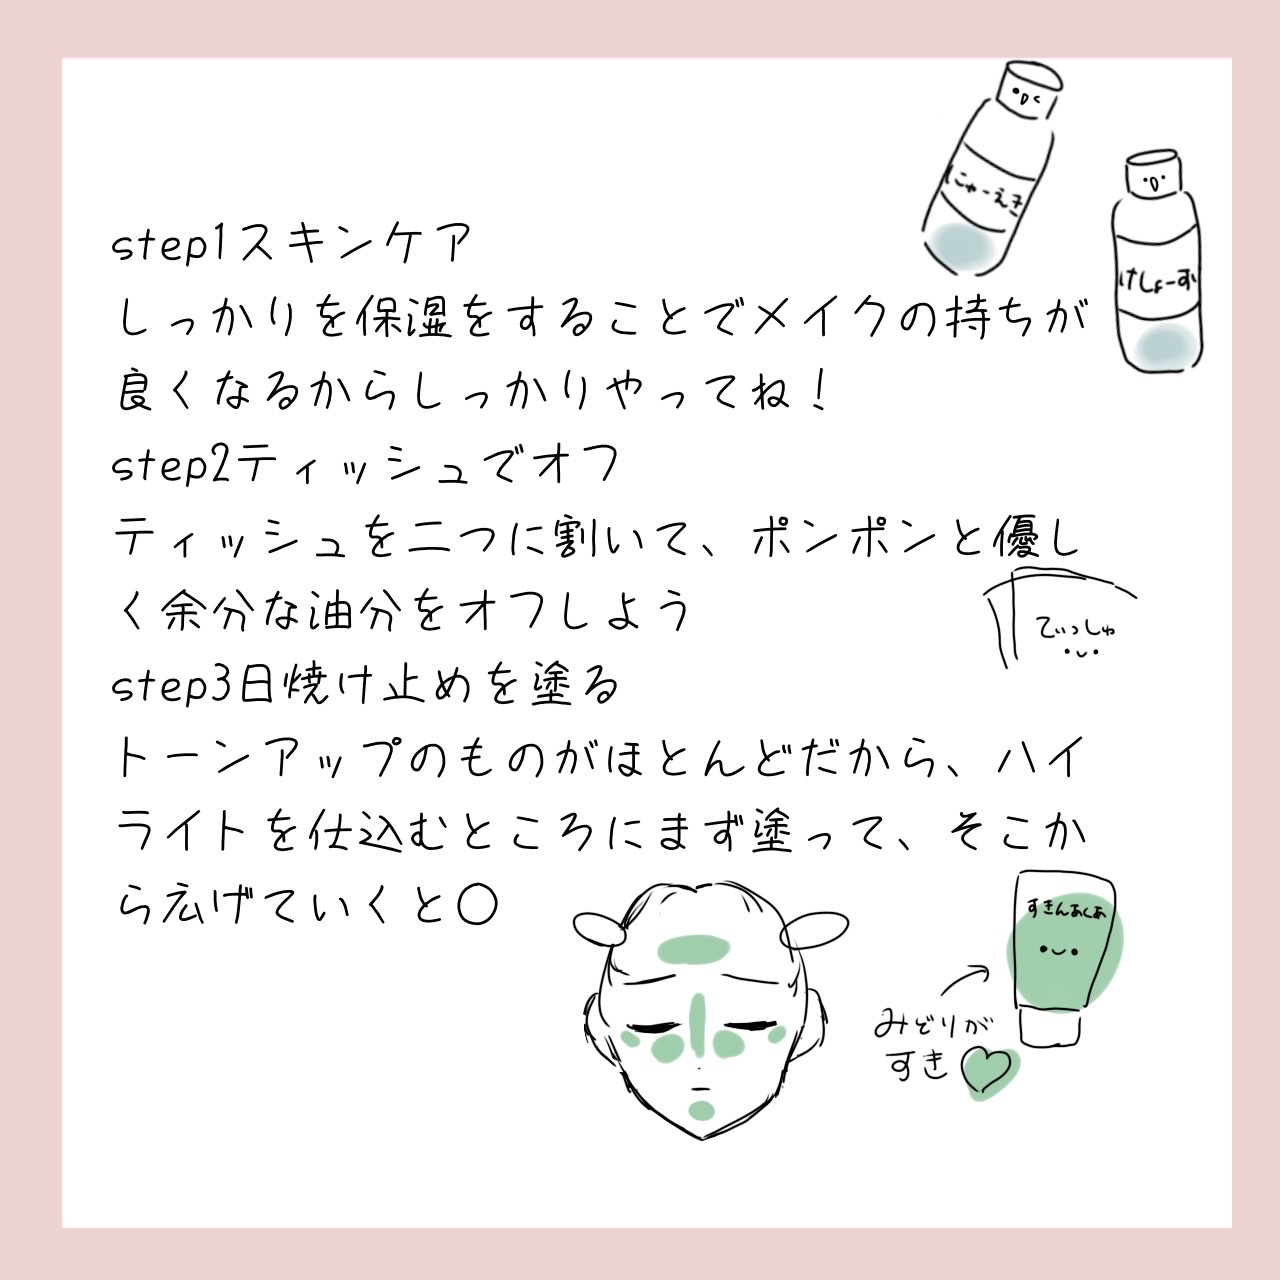 にゅーえき
けしょーすい
step1スキンケア
しっかりを保湿をすることでメイクの持ちが
良くなるからしっかりやってね！
step2ティッシュでオフ
ティッシュを二つに割いて、ポンポンと優し
く余分な油分をオフしよう
てぃっしゅ
step3日焼け止めを塗る
トーンアップのものがほとんどだから、ハイ
ライトを仕込むところにまず塗って、そこか
ら広げていくと〇
すきんあくあ
みどりが
すき